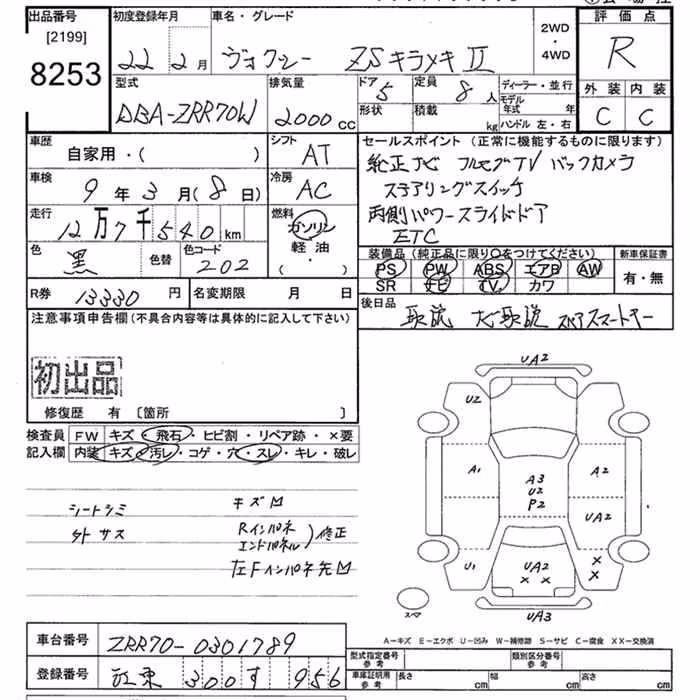 出品番号
[2199]
8253
初度登録年月
22 2月
車名・グレード
ヴォクシー ZSキラメキⅡ
2WD
・
4WD
評価点
R
外装 内装
C C
型式
DBA-ZRR70W
排気量
2000cc
ドア 5
形状
定員 8人
積載 kg
ディーラー・並行
モデル年式 年
ハンドル 左・右
車歴
自家用・( )
シフト
AT
車検
9年3月(8日)
冷房
AC
走行
12万7千540km
燃料
ガソリン
軽・油
・( )
色
黒
色替
色コード
202
R券 13330円
名変期限 月 日
セールスポイント(正常に機能するものに限ります)
純正ナビ フルセグTV バックカメラ
ステアリングスイッチ
両側パワースライドドア
ETC
装備品(純正品に限り○をつけてください)
PS PW ABS エアB AW
SR ナビ TV カワ
新車保証書
有・無
後日品
取説 ナビ取説 スペアスマートキー
注意事項申告欄(不具合内容等は具体的に記入して下さい)
初出品
修復歴 有 〔箇所 〕
検査員記入欄
FW キズ・飛石・ヒビ割・リペア跡・×要
内装 キズ・汚レ・コゲ・穴・スレ・キレ・破レ
シートシミ
外 サス
キズM
Rインパネ
エンドパネル
)修正
左Fインパネ先M
UA2
U2
A1
A3
U2
P2
A2
UA2
U1
UA2
× ×
×
×
UA3
スペア
A-キズ E-エクボ U-凹み W-補修跡 S-サビ C-腐食 XX-交換済
車台番号 ZRR70-0301789
登録番号 300 す 956
型式指定番号
参考
類別区分番号
参考
車庫証明用
参考
長さ cm
幅 cm
高さ cm